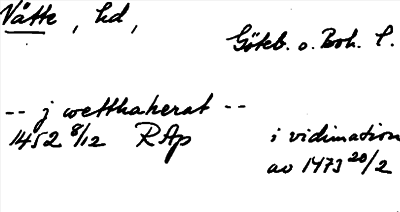 Vätte, hd,
Göteb. o. Boh. l.
-- j wetthaherat --
1452 8/12 RAp i vidimation
av 1473 20/2